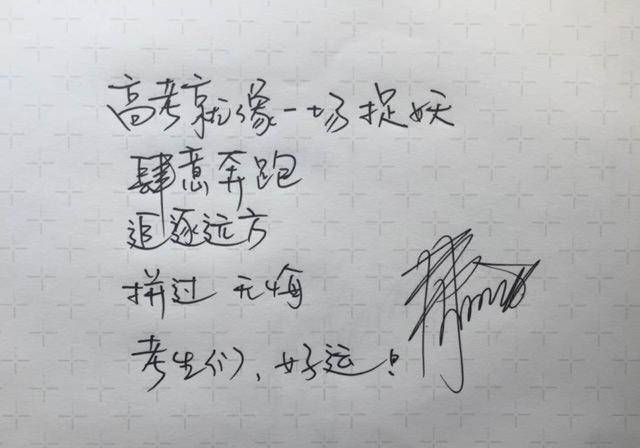 高考就像一场捉妖
肆意奔跑
追逐远方
拼过 无悔
考生们，好运！